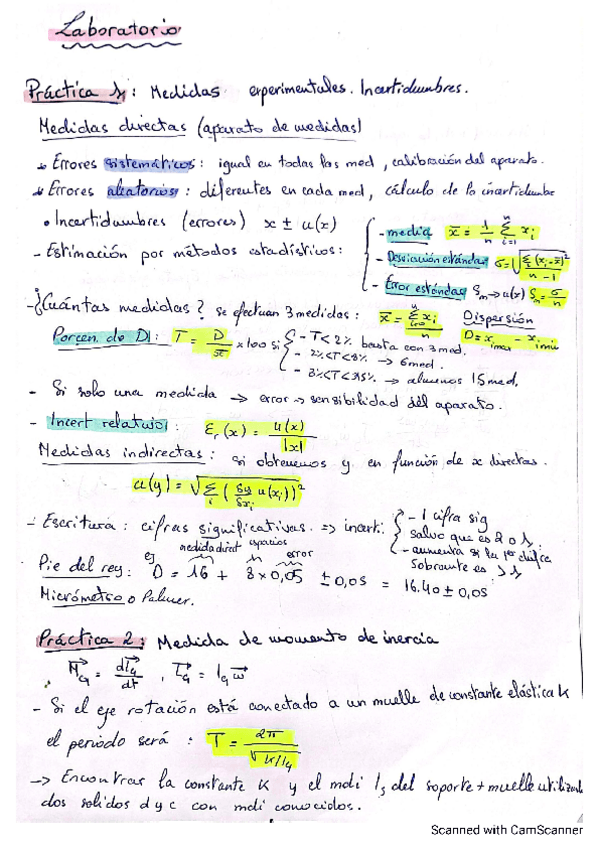 Laboratorio
Práctica 1: Medidas experimentales. Incertidumbres.
Medidas directas (aparato de medidas)
Errores sistemáticos: igual en todas las med, calibración del aparato.
Errores aleatorios: diferentes en cada med, cálculo de la incertidumbre
• Incertidumbres (errores) x ± u(x)
- Estimación por métodos estadísticos:
- media x̄ = 1/n Σ_{i=1}^{n} x_i
- Desviación estándar σ = √(Σ(x_i - x̄)²/(n-1))
- Error estándar S_m → u(x) S_m = σ/√n
- ¿Cuántas medidas? se efectuan 3 medidas: x̄ = Σ x_i/n Dispersión
Porcen. de D: T = D/x̄ × 100 si D = x_imax - x_imin
- T < 2% basta con 3 med.
- 2% < T < 8% → 6 med.
- 8% < T < 15% → al menos 15 med.
- Si solo una medida → error → sensibilidad del aparato.
- Incert relativo: ε_r(x) = u(x)/|x|
Medidas indirectas: si obtenemos y en función de x directas.
u(y) = √(Σ_i (δy/δx_i u(x_i))²)
- Escritura: cifras significativas. => incert.
- 1 cifra sig
salvo que es 2 o 1.
- aumenta si la 1ª cifra
sobrante es
medida direct espacios error
Pie del rey: ej D = 16 + 8 × 0,05 ± 0,05 = 16.40 ± 0,05
Micrómetro o Palmer.
Práctica 2: Medida de momento de inercia
M_G = dL_G/dt , L_G = I_G ω
- Si el eje rotación está conectado a un muelle de constante elástica K
el periodo será: T = 2π/√(K/I_G)
-> Encontrar la constante K y el mdi I_s del soporte + muelle utilizando
dos solidos d y c con mdi conocidos.
Scanned with CamScanner